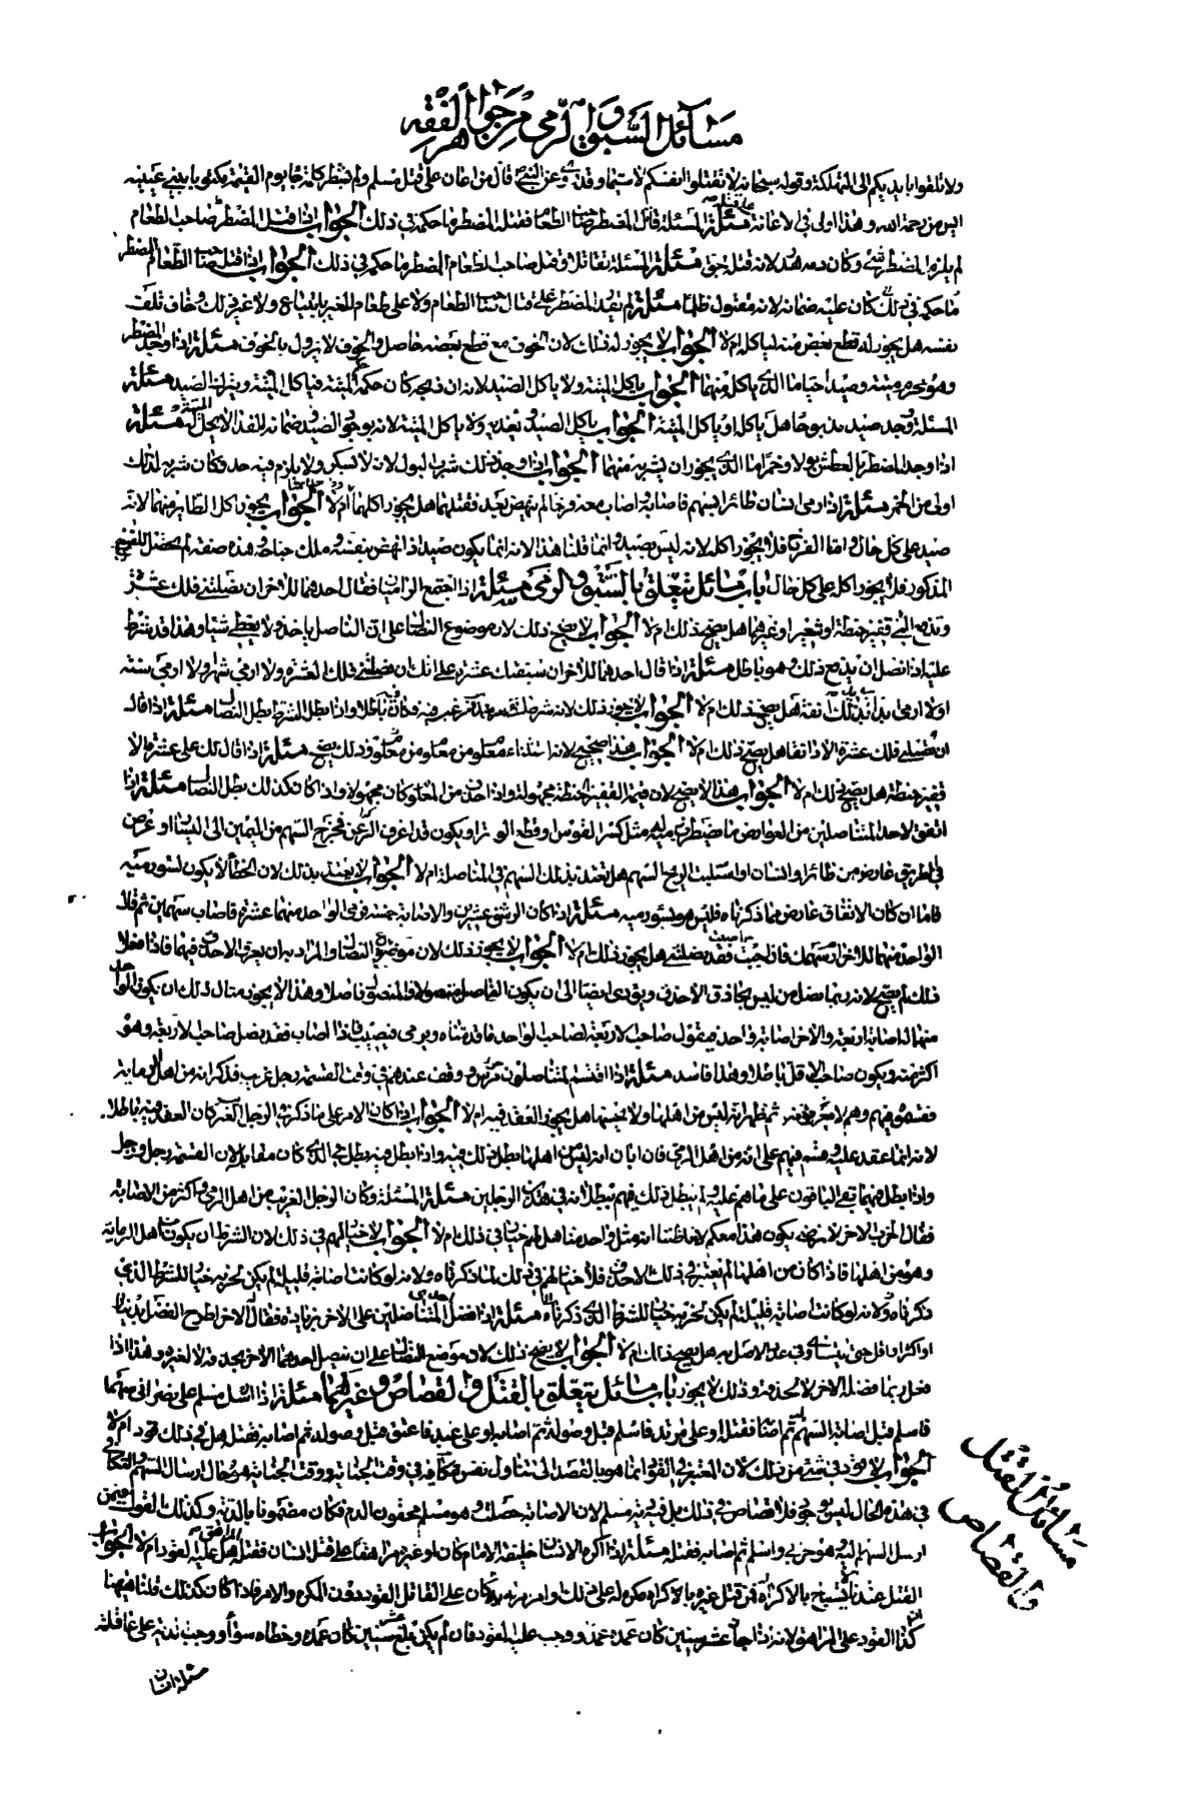 مسائل السبق والرمي من جواهر الفقه
ولا تلقوا بايديكم الى التهلكة وقوله سبحانه لا تقتلوا انفسكم لا سيما وقد روى عن النبي قال من اعان على قتل مسلم ولو بشطر كلمة جاء يوم القيمة مكتوبا بين عينيه
ايس من رحمة الله وهذا اولى في الاعانة على قتله مسئلة المسئلة قاتل المضطر صاحب الطعام فقتله المضطر ما حكمه في ذلك الجواب اذا قتل المضطر صاحب الطعام
لم يلزم المضطر شيء وكان دمه هدرا لانه قتل بحق مسئلة المسئلة تقاتلا وقتل صاحب الطعام المضطر ما حكمه في ذلك الجواب اذا قتل صاحب الطعام المضطر
ما حكمه في ذلك كان عليه ضمانه لانه مقتول ظلما مسئلة لم يقدر المضطر على قتال صاحب الطعام ولا على طعام للغير بابتياع ولا غير ذلك وخاف تلف
نفسه هل يجوز له قطع بعض منه لياكله ام لا الجواب لا يجوز له ذلك لان الخوف مع قطع بعضه حاصل والخوف لا يزول بالخوف مسئلة اذا وجد المضطر
وهو محرم ميتة وصيد احيا ما الذي ياكل منهما الجواب ياكل الميتة ولا ياكل الصيد لانه ان ذبحه كان حكمه حكم الميتة فياكل الميتة ويترك الصيد مسئلة
المسئلة وجد صيد مذبوحا هل ياكله او ياكل الميتة الجواب ياكل الصيد ويفديه ولا ياكل الميتة لانه بوجود الصيد وضمانه للفداء لا يحل له الميتة مسئلة
اذا وجد المضطر بالعطش بولا وخمرا ما الذي يجوز ان يشربه منهما الجواب اذا وجد ذلك شرب البول لانه لا يسكر ولا يلزم فيه حد وكان شربه لذلك
اولى من الخمر مسئلة اذا رمى انسان طائرا بسهم فاصابه واصاب معه فرخا لم ينهض بعد فقتلهما هل يجوز اكلهما ام لا الجواب يجوز اكل الطاير منهما لانه
صيد على كل حال واما الفرخ فلا يجوز اكله لانه ليس بصيد وانما قلنا هذا لانه انما يكون صيدا اذا نهض بنفسه وملك جناحه وهذه صفة لم تحصل للفرخ
المذكور فلا يجوز اكله على كل حال باب مسائل يتعلق بالسبق والرمي مسئلة اذا اجتمع الراميان فقال احدهما للاخر ان نضلتني فلك عشرة
وتدفع الي قفيز حنطة او شعير او غيرهما هل يصح ذلك ام لا الجواب لا يصح ذلك لان موضوع النضال على ان الناضل ياخذ ولا يعطي شيئا وهذا قد شرط
عليه اذا نضل ان يدفع ذلك وهو باطل مسئلة اذا قال احدهما للاخر ان سبقتك عشرة على انك ان نضلتني فلك العشرة ولا ارمي شهرا ولا ارمي سنة
اولا ارمي ابدا نفسه هل يصح ذلك ام لا الجواب لا يجوز ذلك لانه شرط ترك امر مرغب فيه وكان باطلا واذا بطل الشرط بطل النضال مسئلة اذا قال
ان نضلتني فلك عشرة الا دانقا هل يصح ذلك ام لا الجواب هذا صحيح لانه استثناء معلوم من معلوم وذلك يصح مسئلة اذا قال لك علي عشرة الا
قفيز حنطة هل يصح ذلك ام لا الجواب هذا لا يصح لان قيمة القفيز الحنطة مجهولة واذا حذف من المعلوم كان مجهولا واذا كان كذلك بطل النضال مسئلة اذا
اتفق لاحد المتناضلين من العوارض ما يضطرب رميه مثل كسر القوس او قطع الوتر او يكون قد اغرق النزع فخرج السهم من اليمين الى اليسار او عرض
في الطريق عارض من طائر او انسان او استلبت الريح السهم هل يعتد بذلك السهم في المناضلة ام لا الجواب لا يعتد بذلك لان الخطأ لا يكون لسوء رميه
فاما ان كان الاتفاق عارض مما ذكرناه فليس هو لسوء رميه مسئلة اذا كان الرشق عشرين والاصابة خمسة فرمى الواحد منهما عشرة فاصاب سهمين ثم قال
الواحد منهما للاخر ارم سهمك فان اصبت فقد نضلتني هل يجوز ذلك ام لا الجواب لا يجوز ذلك لان موضوع النضال والمراد به ان يعرف الاحذق فيهما فاذا فعلا
ذلك لم يصح لانه ربما نضل من ليس بحاذق الاحذق ويؤدى ايضا الى ان يكون الناضل منضولا والمنضول ناضلا وهذا لا يجوز مثال ذلك ان يكون للواحد
منهما اصابة اربعة وللاخر اصابة واحدة فيقول صاحب الاربعة لصاحب الواحدة ما قدمناه ويرمي فيصيب فاذا اصاب فقد نضل صاحب الاربعة وهو
اكثر منه ويكون صاحب الاقل ناضلا وهذا فاسد مسئلة اذا اقتسم المتناضلون حزبين ووقف عندهم في وقت القسمة رجل غريب فذكر انه من اهل الرماية
فقسموه فيهم وهم لا يعرفونه ثم ظهر انه ليس من اهلها ولا يحسنها هل يجوز العقد فيه ام لا الجواب اذا كان الامر على ما ذكر في الرجل الغريب كان العقد فيه باطلا
لانه انما عقد عليه وقسم فيهم على انه من اهل الرمي فان ابان انه ليس من اهلها بطل ذلك فيه واذا بطل فيه بطل في الذي كان مقابله لان القسمة رجل ورجل
واذا بطل فيهما بقي الباقون على ما هم عليه ولم يبطل ذلك فيهم ببطلانه في هذين الرجلين مسئلة المسئلة وكان الرجل الغريب من اهل الرمي واكثر من الاصابة
فقال الحزب الاخر لا نرضى يكون هذا معكم لانا ظننا انه مثل واحد منا هل لهم خيار في ذلك ام لا الجواب لا خيار لهم في ذلك لان الشرط ان يكون من اهل الرماية
وهو من اهلها فاذا كان من اهلها لم يعتبر في ذلك الاحذق فلا خيار لهم في ذلك لما ذكرناه ولانه لو كانت اصابة قليلة لم يكن لحزبه خيار للشرط الذي
ذكرناه ولانه لو كانت اصابة قليلة لم يكن لحزبه خيار للشرط الذي ذكرناه مسئلة اذا فضل احد المتناضلين على الاخر بزيادة فقال الاخر اطرح الفضل بدينار
او اكثر او اقل حتى يتساوى في عدد الاصابة هل يصح ذلك ام لا الجواب لا يصح ذلك لان موضع النضال على ان نضل احدهما الاخر بحذقه لا لغيره وهذا اذا
فعل ربما نضله الاخر لا بحذقه وذلك لا يجوز باب مسائل يتعلق بالقتل والقصاص وغيرهما مسئلة اذا ارسل مسلم على نصراني سهما
فاسلم قبل اصابة السهم ثم اصابه فقتله او على مرتد فاسلم قبل وصوله ثم اصابه او على عبد فاعتق قبل وصوله ثم اصابه فقتله هل في ذلك قود ام لا
الجواب لا قود في شيء من ذلك لان المعتبر في القود انما هو بالقصد الى تناول نفس مكافئة في وقت الجناية ووقت الجناية هو حال ارسال السهم والتكافي
في هذه الحال ليس بموجود فلا قصاص في ذلك بل فيه دية مسلم لان الاصابة حصلت وهو مسلم محقون الدم فكان مضمونا بالدية وكذلك القول فيمن
ارسل السهم اليه وهو حربي واسلم ثم اصابه فقتله مسئلة اذا اكره الانسان خليفة الامام كان او غيره مراهقا على قتل انسان فقتله المراهق هل عليه القود ام لا الجواب
القتل عندنا لا يستباح بالاكراه فمن قتل غيره بالاكراه من مكره له على ذلك وامر به كان على القاتل القود دون المكره والامر فاذا كان كذلك قلنا هيهنا
كذا القود على المراهق لانه اذا جاز عشر سنين كان عمده عمدا ووجب عليه القود فان لم يكن بلغ عشر سنين كان عمده وخطاه سواء ووجب الدية على عاقلته
مسئلة اذا كان
مسائل القتل
والقصاص